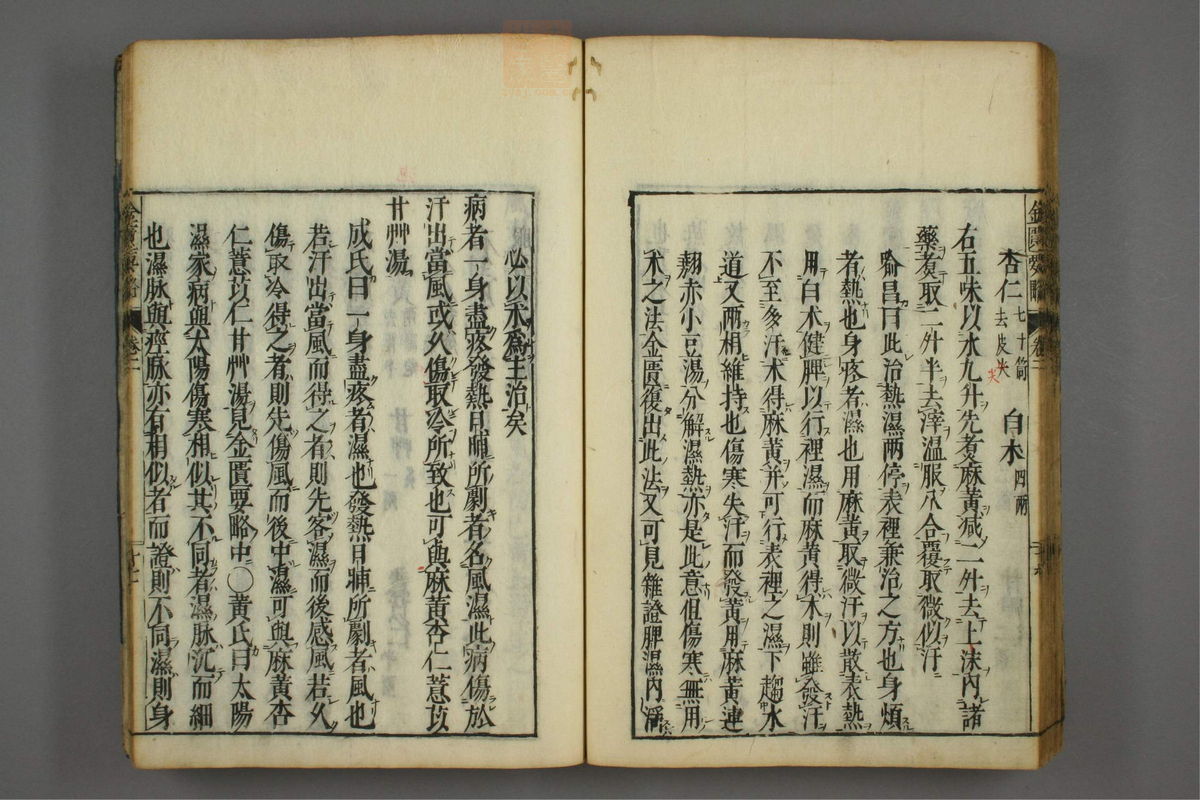 杏仁七十箇去皮尖 白术四兩
右五味以水九升先煮麻黃減二升去上沫內諸
藥煮取二升半去滓溫服八合覆取微似汗
喻昌曰此治熱濕兩停表裡兼治之方也身煩
者熱也身疼者濕也用麻黃取微汗以散表熱
用白术健脾以行裡濕而麻黃得术則雖發汗
不至多汗术得麻黃并可行表裡之濕下趨水
道又兩相維持也傷寒失汗而發黃用麻黃連
翹赤小豆湯分解濕熱亦是此意但傷寒無用
术之法金匱復出此法又可見雜證脾濕內淫
必以术為主治矣
病者一身盡疼發熱日晡所劇者名風濕此病傷於
汗出當風或久傷取冷所致也可與麻黃杏仁薏苡
甘艸湯
成氏曰一身盡疼者濕也發熱日晡所劇者風也
若汗出當風而得之者則先客濕而後感風若久
傷取冷得之者則先傷風而後中濕可與麻黃杏
仁薏苡仁甘艸湯見金匱要略中○黃氏曰太陽
濕家病與太陽傷寒相似其不同者濕脉沉而細
也濕脉與痙脉亦有相似者而證則不同濕則身